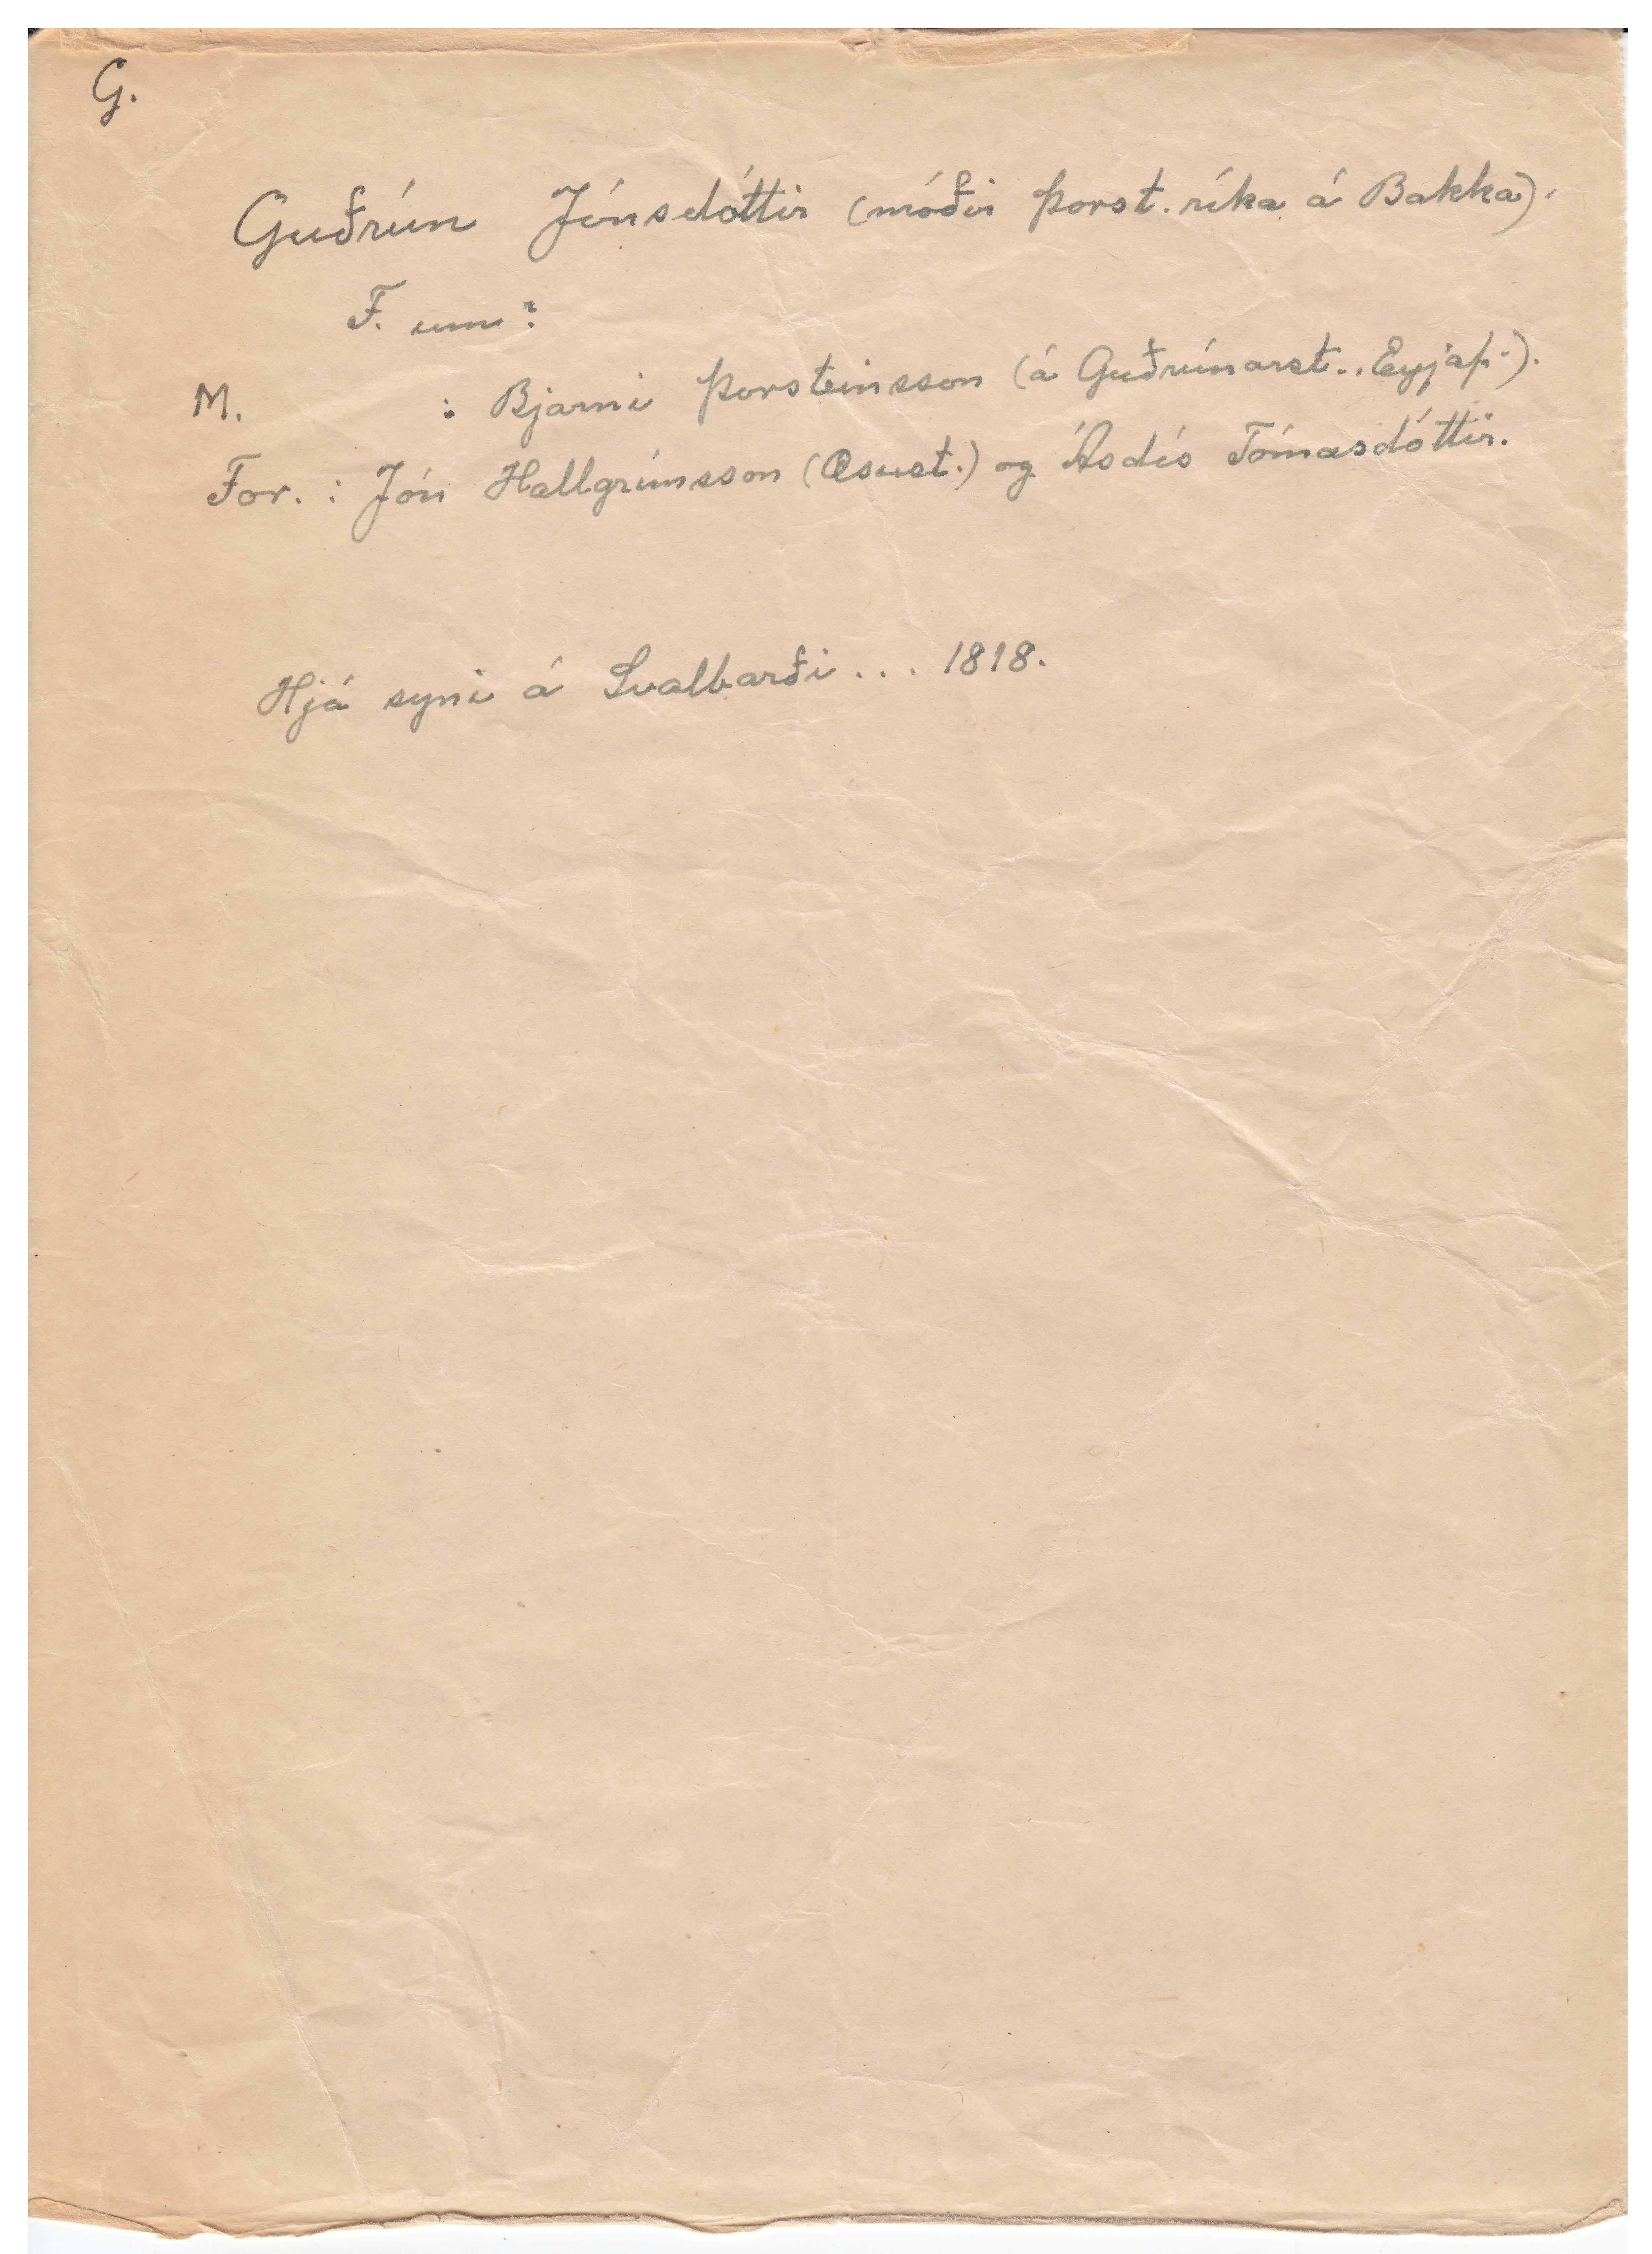 G.
Guðrún Jónsdóttir (móðir Þorst. ríka á Bakka).
F. um ?
M. : Bjarni Þorsteinsson (á Guðrúnarst., Eyjaf.).
For. : Jón Hallgrímsson (Æsust.) og Ásdís Tómasdóttir.
Hjá syni á Svalbarði ... 1818.